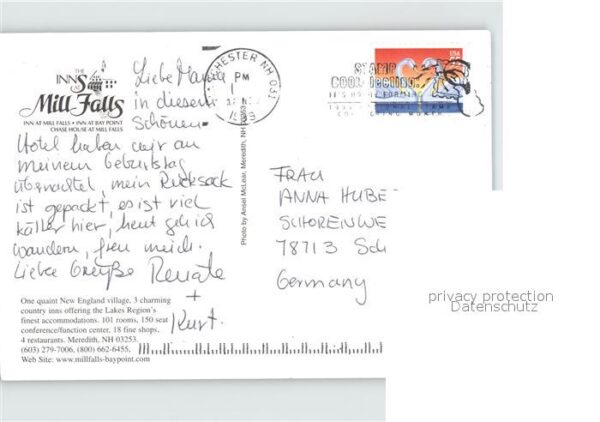 THE
INNS
AT
Mill Falls
INN AT MILL FALLS • INN AT BAY POINT
CHASE HOUSE AT MILL FALLS
Liebe Mama
in diesem
Schönen
Hotel haben wir an
meinem Geburtstag
übernachtet, mein Rucksack
ist gepackt, es ist viel
kälter hier, heut geh ich
wandern, freu mich.
Liebe Grüße Renate
+
Kurt.
One quaint New England village, 3 charming
country inns offering the Lakes Region's
finest accommodations. 101 rooms, 150 seat
conference/function center, 18 fine shops,
4 restaurants. Meredith, NH 03253.
(603) 279-7006, (800) 662-6455,
Web Site: www.millfalls-baypoint.com
Photo by Ansel McLear, Meredith, NH 03253
CHESTER NH 031
PM
STAMP
COLLECTING
USA
FRAU
ANNA HUBE
SCHORENWE
78713 Sch
Germany
privacy protection
Datenschutz